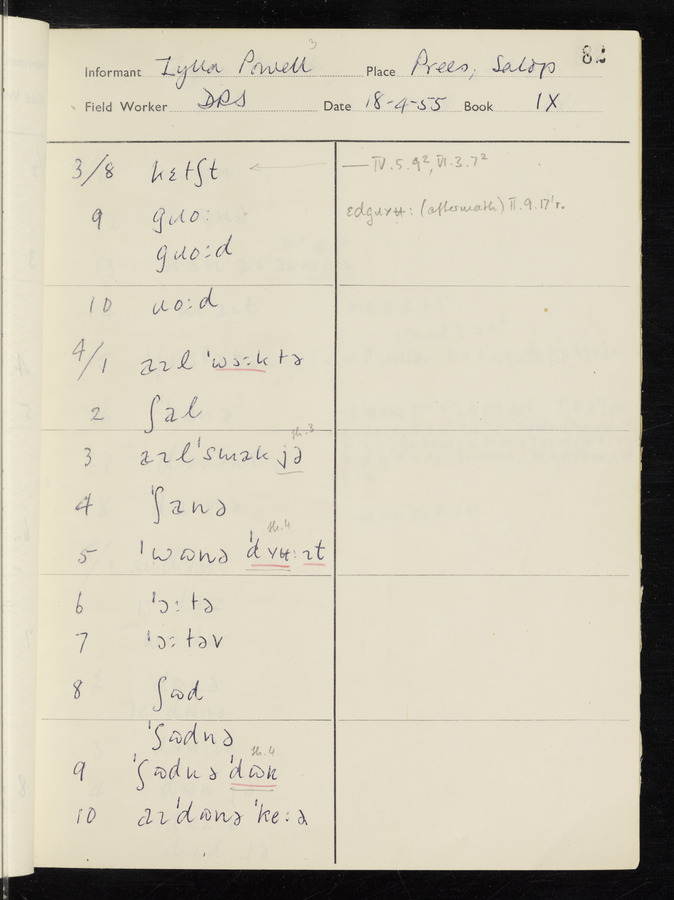 82
Informant Zylla Powell 3 Place Prees, Salop
Field Worker DRS Date 18-4-55 Book IX
3/8 kɛtʃt — IV.5.9², VI.3.7²
9 gɷo:
ɛdgɹʏʉ: (aftermath) II.9.17'r.
gɷo:d
10 ɷo:d
4/1 aɪl 'wɔ:k tə
2 ʃal
3 aɪl 'smak jə
4 'ʃanə
5 'wɷnə 'dʏʉ:ɪt
6 'ɔ:tə
7 'ɔ:təv
8 ʃɷd
'ʃɷdnə
9 'ʃɷdnə 'dɷn
10 aɪ 'dɷnə 'ke:ə